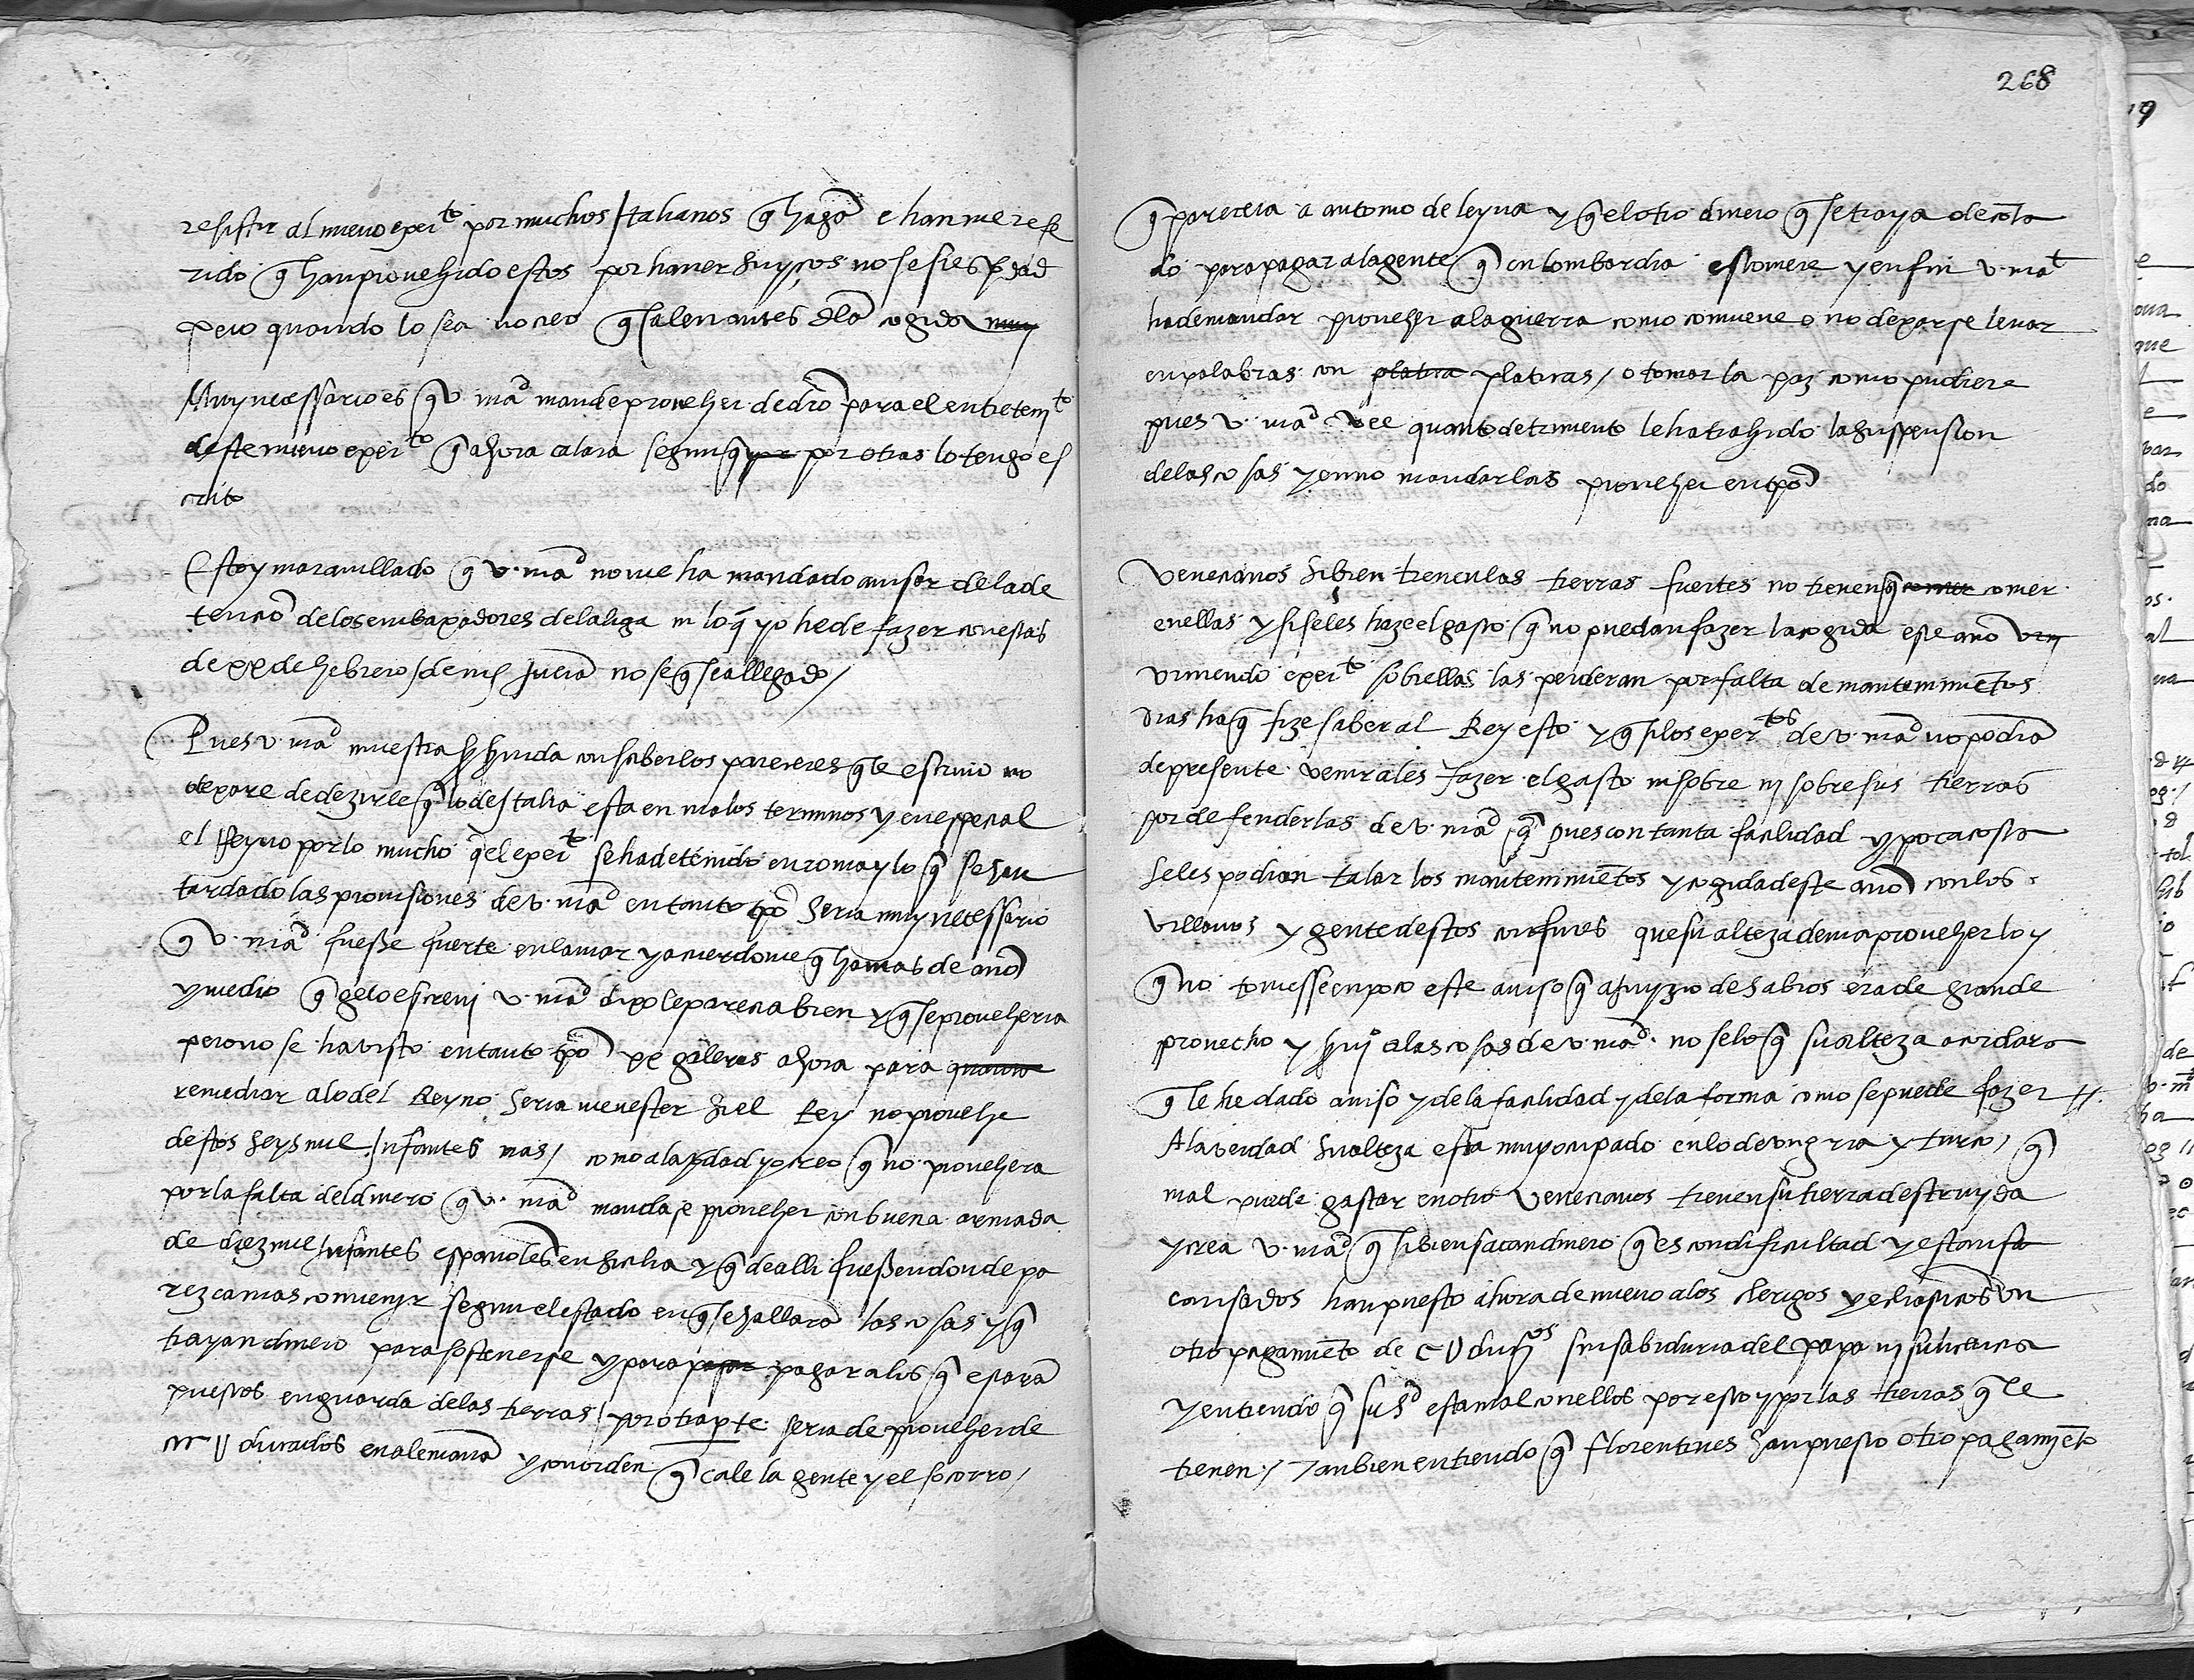 resistir al nuevo exerto por muchos Italianos q̃ hagã e hanme refe
rido q̃ han provehido estos por haver suyços no se si es ṽdad
pero quando lo sea no creo q̃ salen antes dla cogida muy
Muy necessario es q̃ v. mad mande proveher de diño para el entretenimto
deste nuevo exerto q̃ ahora calara segun q̃ por otras lo tengo es
crito
Estoy maravillado q̃ v. mad no me ha mandado avisar de la de
tenciõ de los embaxadores de la liga ni lo q̃ yo he de fazer con estas
de xx de hebrero no se q̃ sea llegado /
Pues v. mad muestra q̃ con saber los pareceres q̃ le escrivo no
dexare de dezirle q̃ lo de Italia esta en malos terminos y en especial
el Reyno por lo mucho q̃ el exerto se ha detenido en roma y lo q̃ se han
tardado las provisiones de v. mad en tanto tpõ seria muy necessario
q̃ v. mad fuesse fuerte en la mar y acuerdome q̃ ha mas de año
y medio q̃ gelo escrevi v. mad dixo le parecia bien y q̃ se proveheria
pero no se ha visto en tanto tpõ de galeras ahora para quanto
remediar a lo del Reyno seria menester si el Rey no provehe
destos seys mil Infantes mas / como a la ṽdad yo creo q̃ no provehera
por la falta del dinero q̃ v. mad mandasse proveher con buena armada
de diez mil Infantes españoles en Sicilia y q̃ de alli fuessen donde pa
rezca mas convenyr segun el estado en q̃ se hallarã las cosas y q̃
trayan dinero para sostenerse y para pagar pagar a los q̃ estarã
puestos en guarda de las tierras / por otra pte seria de proveher de
ducados en alemaña y con orden q̃ cale la gente y el socorro /
268
q̃ pareciera a antonio de leyva y q̃ el otro dinero q̃ se traya de cõta
do para pagar a la gente q̃ en lombardia estoviere y en fin v. mat
ha de mandar proveher a la guerra como conviene o no dexarse levar
en palabras con platica platicas / o tomar la paz como pudiere
pues v. mad vee quanto detrimento le ha trahido la suspension
de las cosas y en no mandarlas proveher en tpõ
Venecianos si bien tienen las tierras fuertes no tienen q̃ comer comer
en ellas y si se les haze el gasto q̃ no puedan fazer la cogida este año vin
viniendo exerto sobrellas las perderan por falta de mantenimiẽtos
dias ha q̃ fize saber al Rey esto y q̃ si los exertos de v. mad no podiã
de presente venir a les fazer el gasto ni sobre nj sobre sus tierras
por defender las de v. mad q̃ pues con tanta facilidad y poca costa
se les podian talar los mantenimiẽtos y cogida deste año con los
villanos y gente destos confines que su alteza devia proveherlo y
q̃ no toviesse en poco este aviso q̃ a juyzio de sabios era de grande
provecho y a las cosas de v. mad. no se lo q̃ su alteza acordara
q̃ le he dado aviso y de la facilidad y de la forma como se puede fazer
A la verdad su alteza esta muy ocupado en lo de ungria y turco / q̃
mal puede gastar en otro Venecianos tienen su tierra destruyda
y crea v. mad q̃ si bien sacan dinero q̃ es con dificultad y estan
cansados han puesto ahora de nuevo a los clerigos y eclesiasticos un
otro pagamiẽto de ducos sin sabiduria del papa nj su licencia
y entiendo q̃ su Sd esta mal con ellos por esto y por las tierras q̃ le
tienen / Tanbien entiendo q̃ florentines han puesto otro pagamjẽto